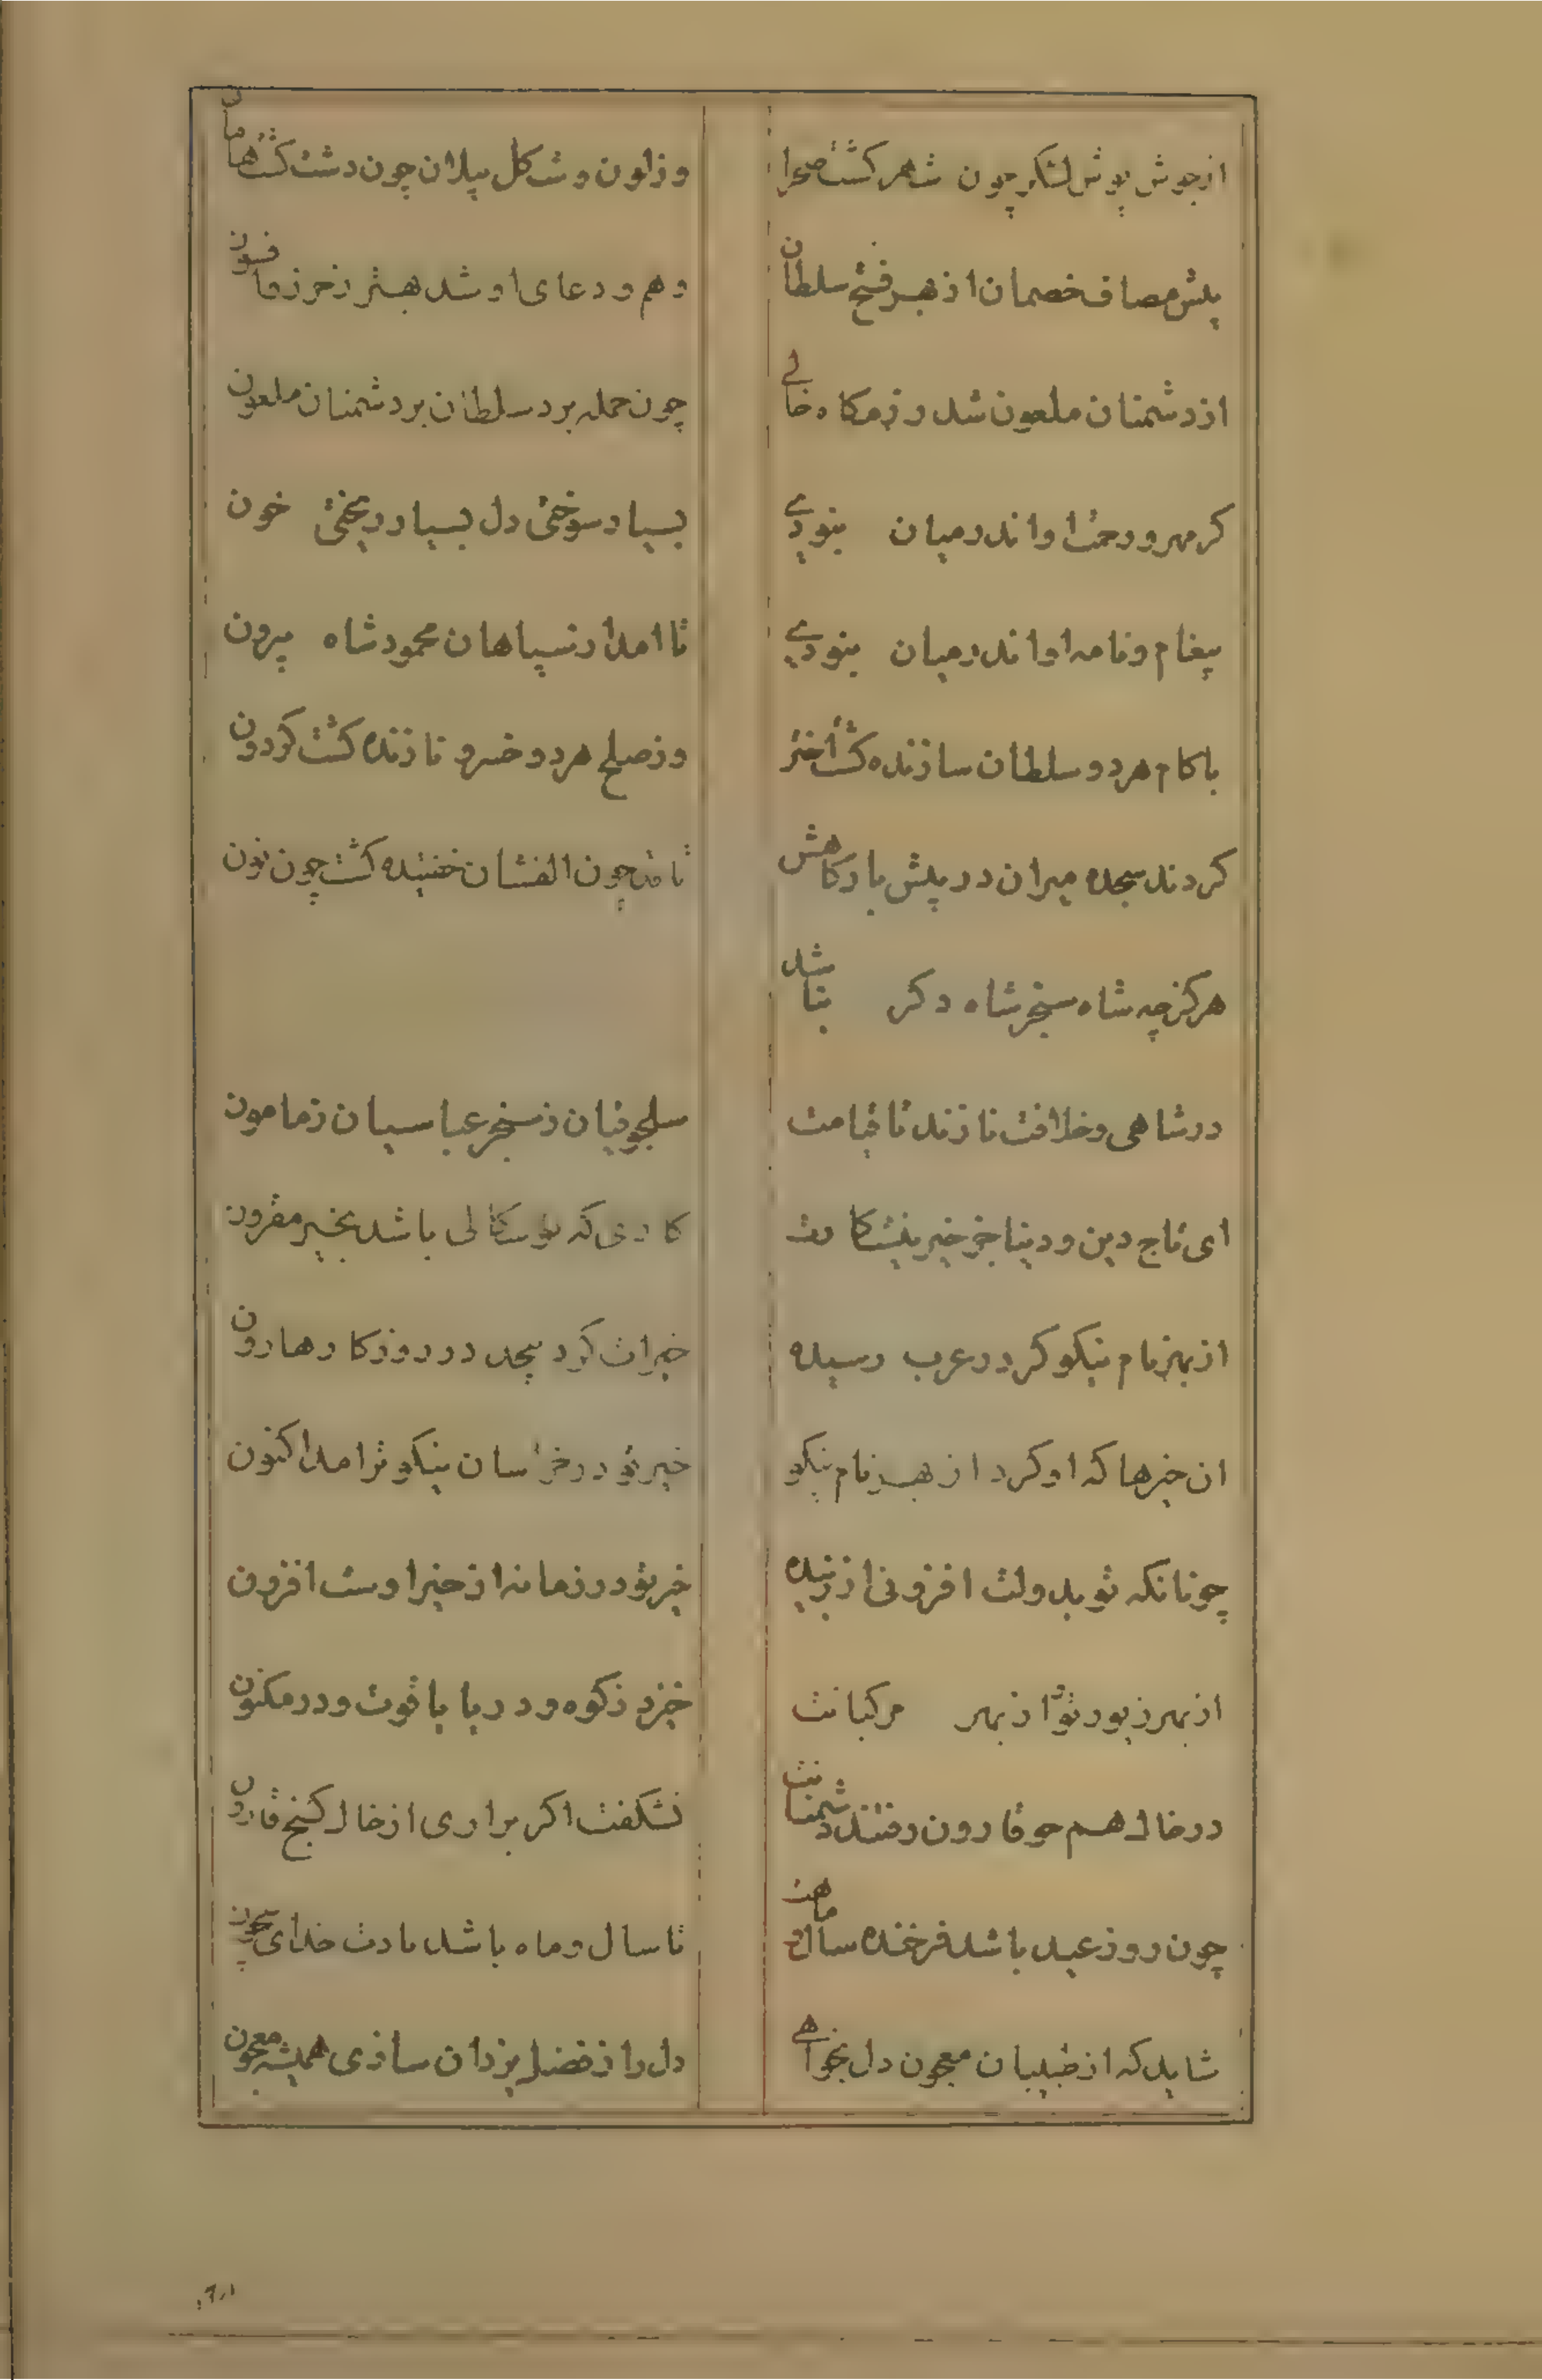 ازجوش پوش لشکر چون شهر کشت صحرا وزلون و شکل پیلان چون دشت کشت هامان
پیش مصاف خصمان از بهر فتح سلطان وهم و دعای او شد بهتر زحرز مافسون
از دشمنان ملعون شد رزمکاه خالی چون حمله برد سلطان بر دشمنان ملعون
کر مهر و رحمت او اندر میان نبودی بسیار سوختی دل بسیار ریختی خون
پیغام و نامه او اندر میان نبودی تا امد از سپاهان محمود شاه بیرون
با کام هر دو سلطان سازنده کشت اختر وز صلح هر دو خسرو نازنده کشت کردون
کردند سجده میران در پیش بارکاهش تا قد چون الفشان خمیده کشت چون نون
هرکز چه شاه سنجر شاه دکر نباشد
در شاهی و خلافت نازند تا قیامت سلجوقیان ز سنجر عباسیان ز مامون
ای تاج دین و دنیا جز خیر نیست کارت کاری که تو سکالی باشد بخیر مقرون
از بهر نام نیکو کر در عرب رسیده خیرات کرد بیحد در روزکار هارون
ان خیرها که او کرد از بهر نام نیکو خیر تو در خراسان نیکو تر امد اکنون
چونانکه تو بدولت افزونی از زبیده خیر تو در زمانه از خیر اوست افزون
از بهر زیور تو از بهر مرکبانت خیزد ز کوه و دریا یاقوت و در مکنون
در خاک هم چو قارون رفتند دشمنانت نشکفت اکر براری از خاک کنج قارون
چون روز عید باشد فرخنده سال و ماهت تا سال و ماه باشد بادت خدای بیچون
شاید که از طبیبان معجون دل نخواهی دل را ز فضل یزدان سازی همیشه معجون